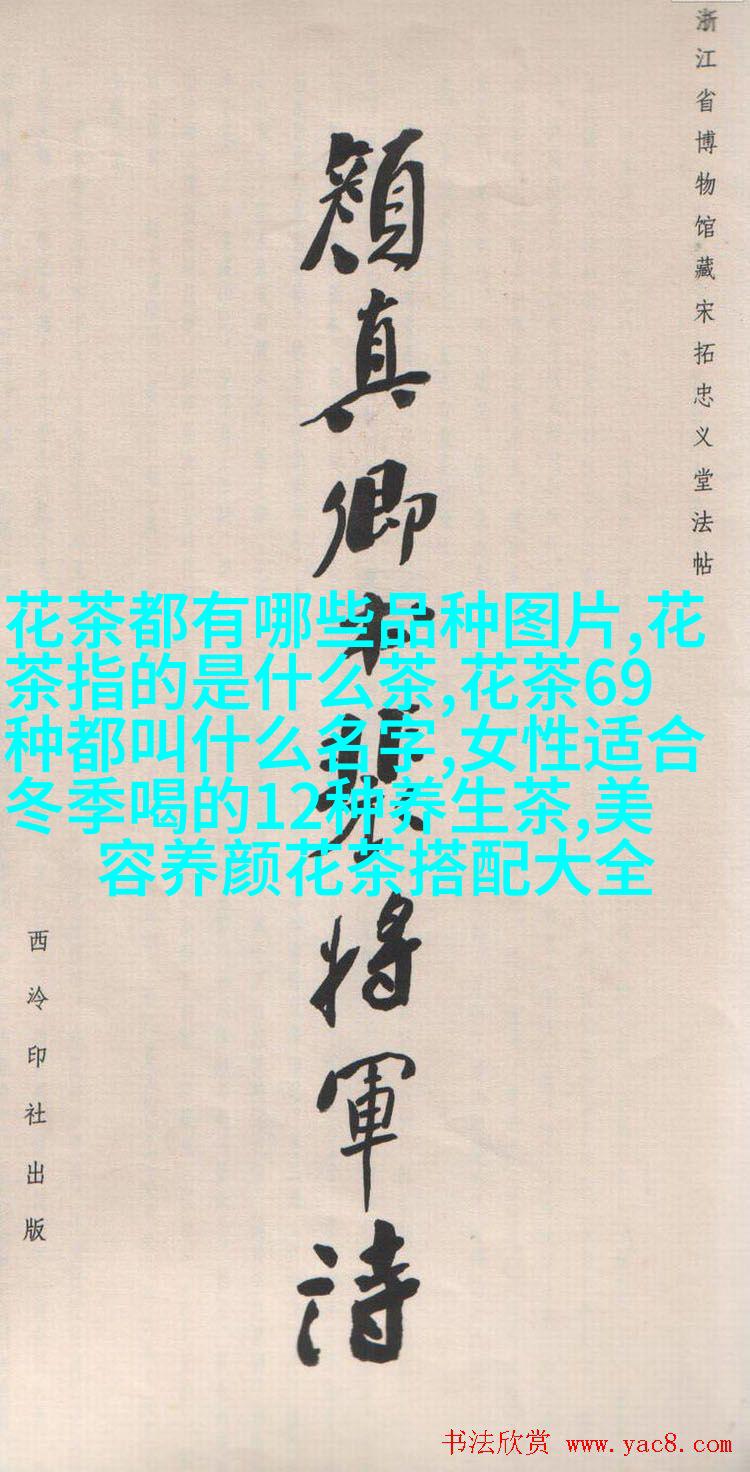 浙江省博物馆藏宋拓忠义堂法帖
颜真卿书裴将军诗
花茶都有哪些品种图片,花
茶指的是什么茶,花茶69
种都叫什么名字,女性适合
冬季喝的12种养生茶,美
容养颜花茶搭配大全
西泠印社出版
书法欣赏 www.yac8.com